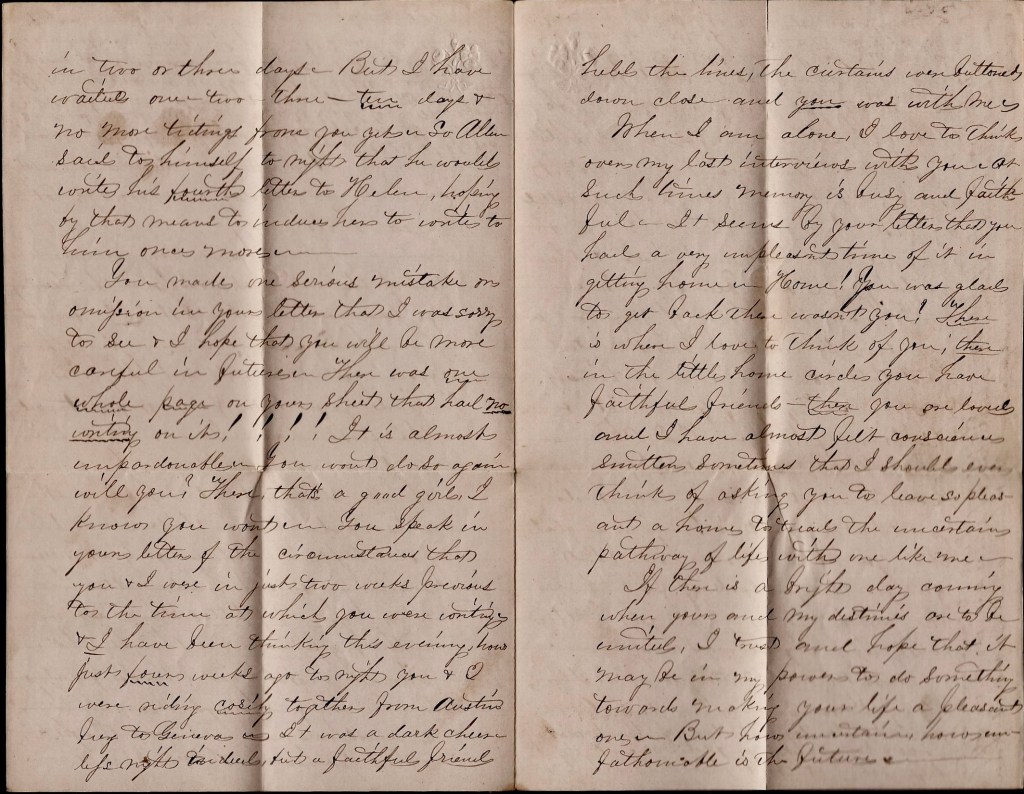 in two or three days – But I have
waited one – two – three – ten days &
no more tidings from you yet – So Allen
said to himself to night that he would
write his fourth letter to Helen, hoping
by that means to induce her to write to
him once more –
You made one serious mistake or
omission in your letter that I was sorry
to see & I hope that you will be more
careful in future – There was one
whole page on your sheet that had no
writing on it! ! ! ! It is almost
unpardonable – You wont do so again
will you? There, that's a good girl, I
know you wont – You speak in
your letter of the circumstances that
you & I were in just two weeks previous
to the time at which you were writing
& I have been thinking this evening, how
just four weeks ago to night you & I
were riding cosily together from Austin
to Geneva – It was a dark cheer
less night indeed, but a faithful friend
held the lines, the curtains were buttoned
down close and you was with me –
When I am alone, I love to think
over my last interview with you – At
such times memory is busy and faith
ful – It seems by your letter that you
had a very unpleasant time of it in
getting home – Home! You was glad
to get back there wasn't you? There
is where I love to think of you; there
in the little home circle you have
faithful friends – there you are loved
and I have almost felt conscience
smitten sometimes that I should ever
think of asking you to leave so pleas-
ant a home to tread the uncertain
pathway of life with one like me –
If there is a bright day coming
when your and my destinies are to be
united, I trust and hope that, it
may be in my power to do something
towards making your life a pleasant
one – But how uncertain, how un-
fathomable is the future –